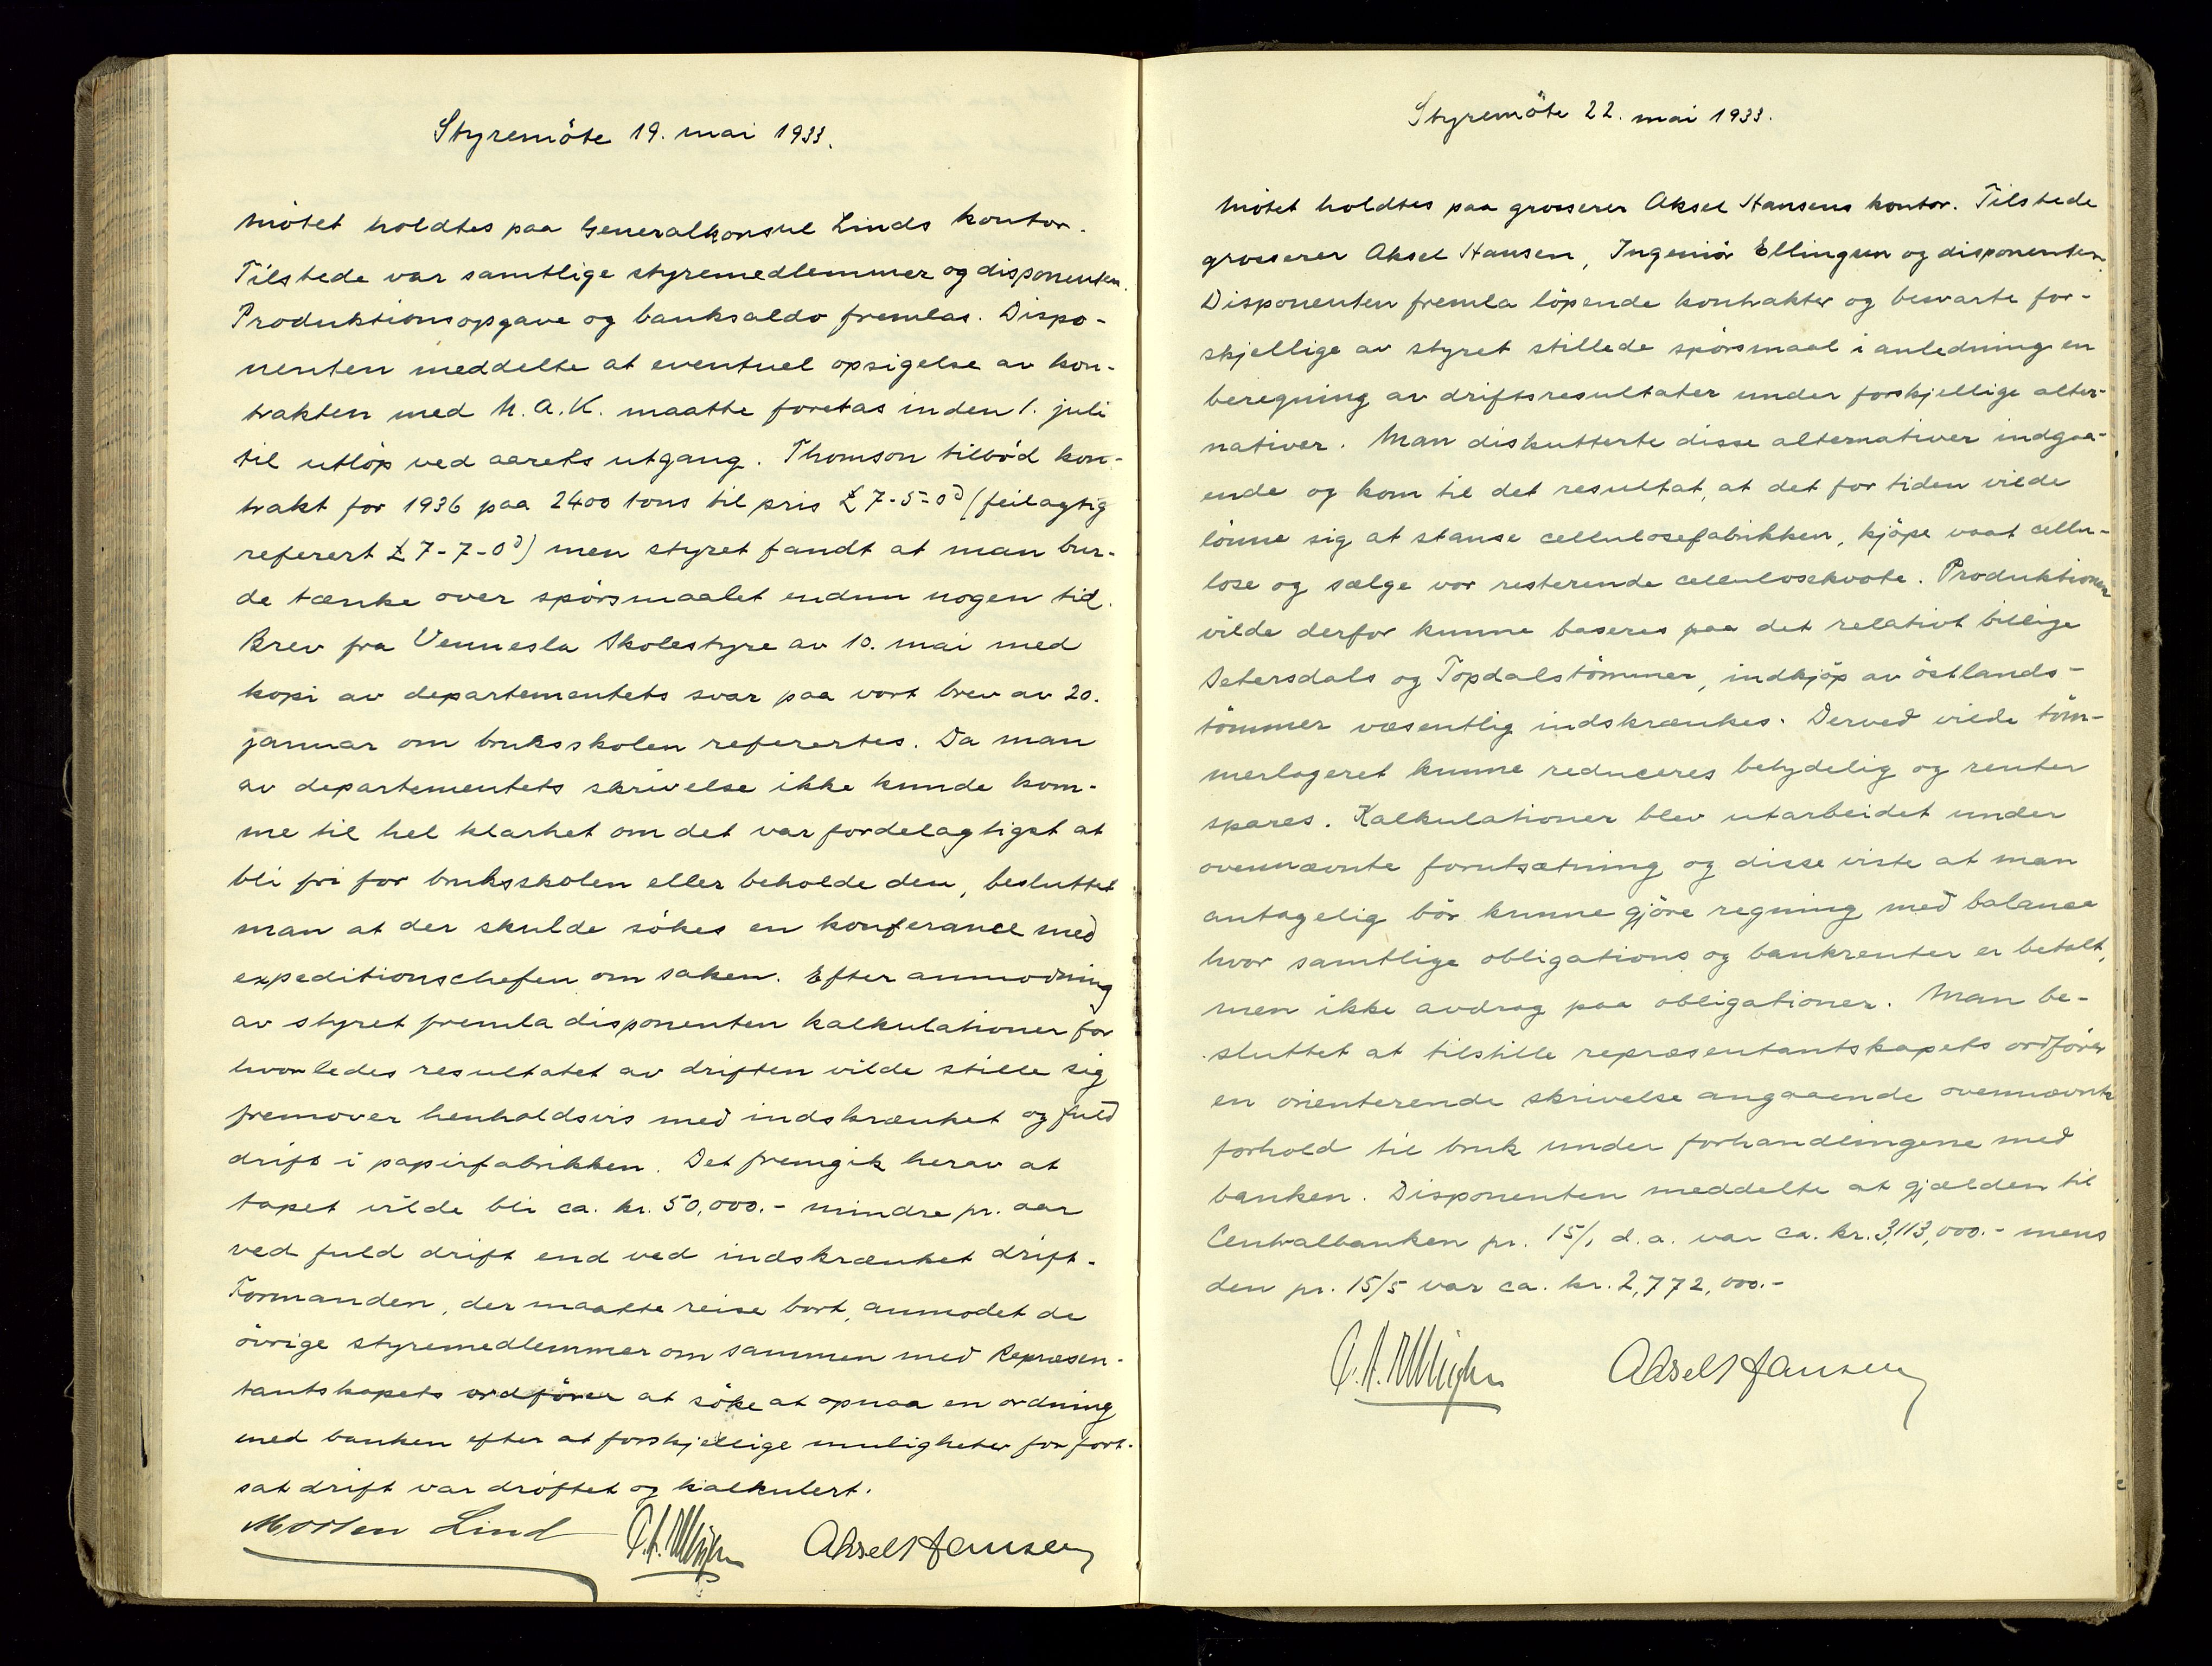 Styremöte 19. mai 1933.
Mötet holdtes paa Generalkonsul Linds kontor.
Tilstede var samtlige styremedlemmer og disponenten.
Produktionsopgave og banksaldo fremlas. Dispo-
nenten meddelte at eventuel opsigelse av kon-
trakten med M.A.K. maatte foretas inden 1. juli
til utlöp ved aarets utgang. Thomson tilböd kon-
trakt for 1936 paa 2400 tons til pris £ 7-5-0d (feilagtig
referert £ 7-7-0d) men styret fandt at man bur-
de tænke over spörsmaalet endnu nogen tid.
Brev fra Vennesla Skolestyre av 10. mai med
kopi av departementets svar paa vort brev av 20.
januar om bruksskolen referertes. Da man
av departementets skrivelse ikke kunde kom-
me til hel klarhet om det var fordelagtigst at
bli fri for bruksskolen eller beholde den, besluttet
man at der skulde sökes en konferance med
expeditionschefen om saken. Efter anmodning
av styret fremla disponenten kalkulationer for
hvorledes resultatet av driften vilde stille sig
fremover henholdsvis med indskrænket og fuld
drift i papirfabrikken. Det fremgik herav at
tapet vilde bli ca. kr. 50,000.- mindre pr. aar
ved fuld drift end ved indskrænket drift.
Formanden, der maatte reise bort, anmodet de
övrige styremedlemmer om sammen med Represen-
tantskapets ordförer at söke at opnaa en ordning
med banken efter at forskjellige muligheter for fort-
sat drift var dröftet og kalkulert.
Morten Lind Aksel Hansen
Styremöte 22. mai 1933.
Mötet holdtes paa grosserer Aksel Hansens kontor. Tilstede
grosserer Aksel Hansen, Ingeniör Ellingsen og disponenten.
Disponenten fremla löpende kontrakter og besvarte for-
skjellige av styret stillede spörsmaal i anledning en
beregning av driftsresultater under forskjellige alter-
nativer. Man diskutterte disse alternativer indgaa-
ende og kom til det resultat, at det for tiden vilde
lönne sig at stanse cellulosefabrikken, kjöpe vaat cellu-
lose og sælge vor resterende cellulosekvote. Produktionen
vilde derfor kunne baseres paa det relativt billige
Setersdals og Topdalstömmer, indkjöp av östlands-
tömmer væsentlig indskrænkes. Derved vilde töm-
merlageret kunne reduceres betydelig og renter
spares. Kalkulationer blev utarbeidet under
ovennævnte forutsætning og disse viste at man
antagelig bör kunne gjöre regning med balance
hvor samtlige obligations og bankrenter er betalt,
men ikke avdrag paa obligationer. Man be-
sluttet at tilstille repræsentantskapets ordförer
en orienterende skrivelse angaaende ovennævnte
forhold til bruk under forhandlingene med
banken. Disponenten meddelte at gjælden til
Centralbanken pr. 15/1 d.a. var ca. kr. 3,113,000.- mens
den pr. 15/5 var ca. kr. 2,772,000.-
Aksel Hansen